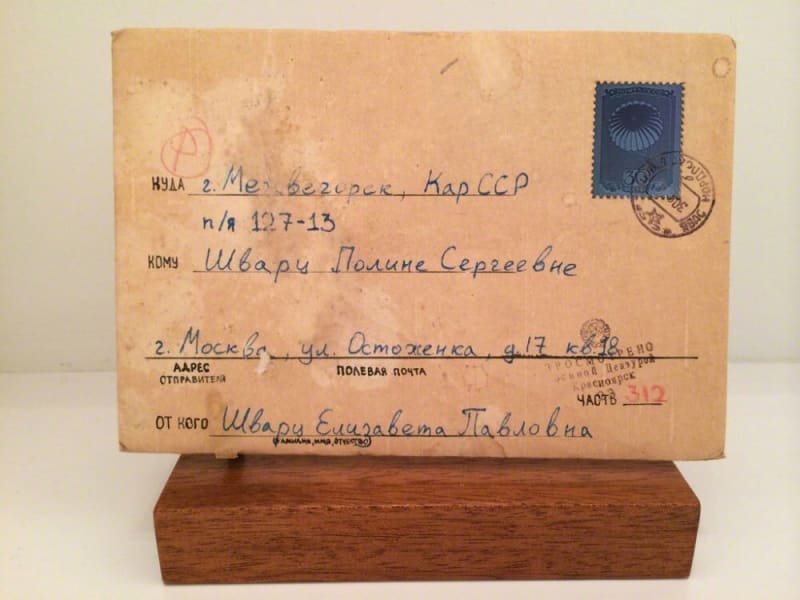 КУДА г. Медвегорск, Кар ССР
п/я 127-13
КОМУ Шварц Полине Сергеевне
г. Москва, ул. Остоженка, д. 17 кв. 98
АДРЕС ОТПРАВИТЕЛЯ
ПОЛЕВАЯ ПОЧТА
ПРОСМОТРЕНО
Военной Цензурой
Красноярск
ЧАСТЬ 312
ОТ КОГО Шварц Елизавета Павловна
(ФАМИЛИЯ, ИМЯ, ОТЧЕСТВО)